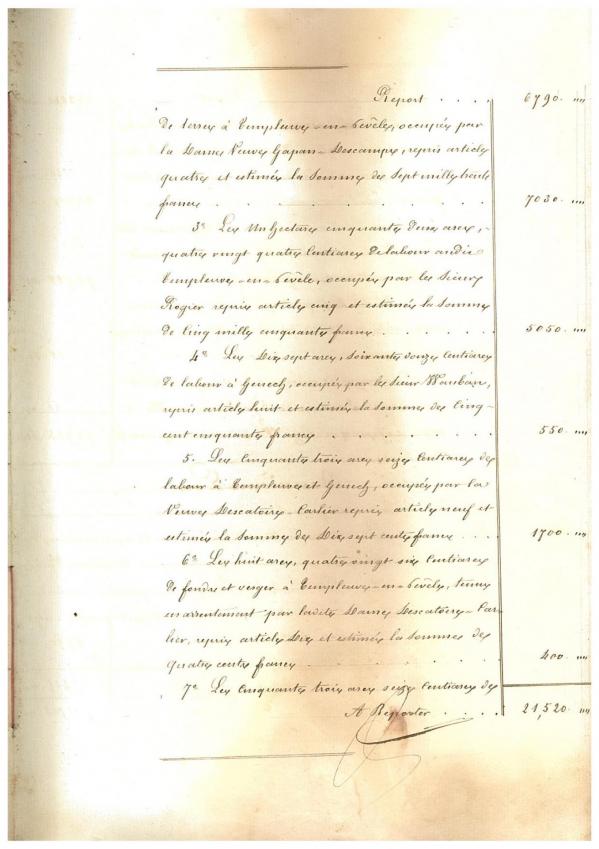 Report . . . . 6790. "
de terre à Templeuve-en-Pévèle, occupés par
la Dame Veuve Gapan-Descamps, repris article
quatre et estimés la somme de Sept mille trente
francs . . . . . . . 7030. "
3° Les Un hectare cinquante deux ares,
quatre vingt quatre centiares de labour audit
Templeuve-en-Pévèle, occupés par le Sieur
Rogier repris article cinq et estimés la somme
de Cinq mille cinquante francs . . . . . 5050 "
4° Les Dix sept ares, soixante douze centiares
de labour à Genech, occupés par le Sieur Wauban,
repris article huit et estimés la somme de Cinq
cent cinquante francs . . . . . . . 550 "
5. Les Cinquante trois ares seize Centiares de
labour à Templeuve et Genech, occupés par la
Veuve Descatoire-Carlier repris article neuf et
estimés la somme de Dix sept cents francs . . 1700 "
6° Les huit ares, quatre vingt six Centiares
de fonds et verger à Templeuve-en-Pévèle, tenus
en arrentement par ladite Dame Descatoire-Car-
lier, repris article Dix et estimés la somme de
quatre cents francs . . . . . . . 400. "
7° Les Cinquante trois ares seize Centiares de
A Reporter . . . . 21,520 "